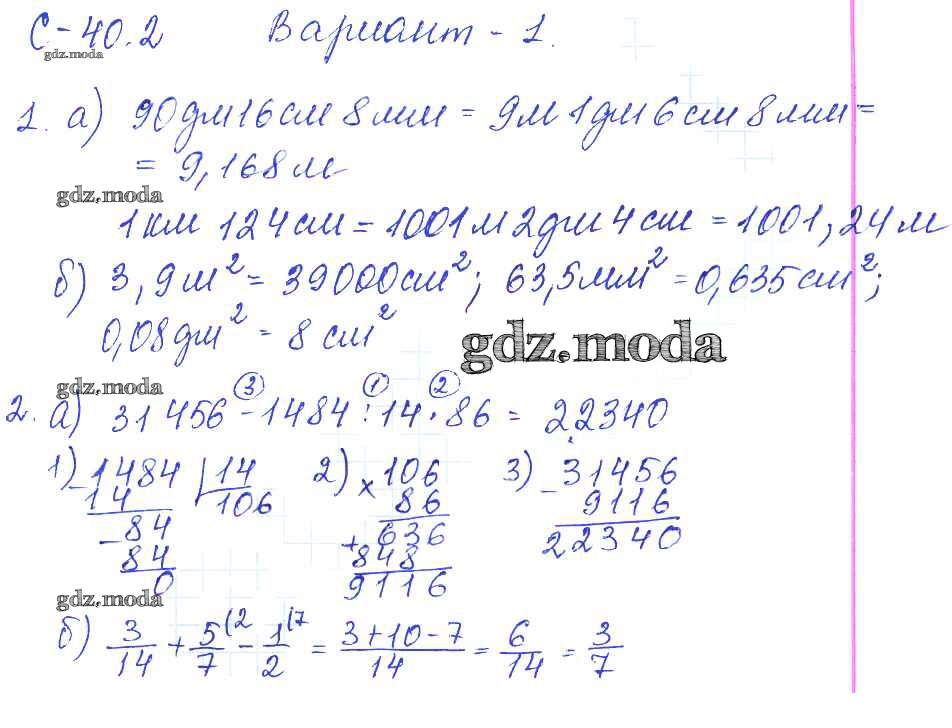 С-40.2 Вариант - 1.
gdz.moda
1. а) 90дм 16см 8мм = 9м 1дм 6см 8мм =
= 9,168м
gdz.moda
1км 124см = 1001м 2дм 4см = 1001,24м
б) 3,9м² = 39000см²; 63,5мм² = 0,635см²;
0,08дм² = 8см²
gdz.moda
gdz.moda
③ ① ②
2. а) 31456 - 1484 : 14 · 86 = 22340
1) 1484 | 14 2) 106 3) 31456
- 14 106 × 86 - 9116
- 84 + 636 22340
84 848
0 9116
gdz.moda
б) 3/14 + 5/7 (2 - 1/2 (7 = (3+10-7)/14 = 6/14 = 3/7